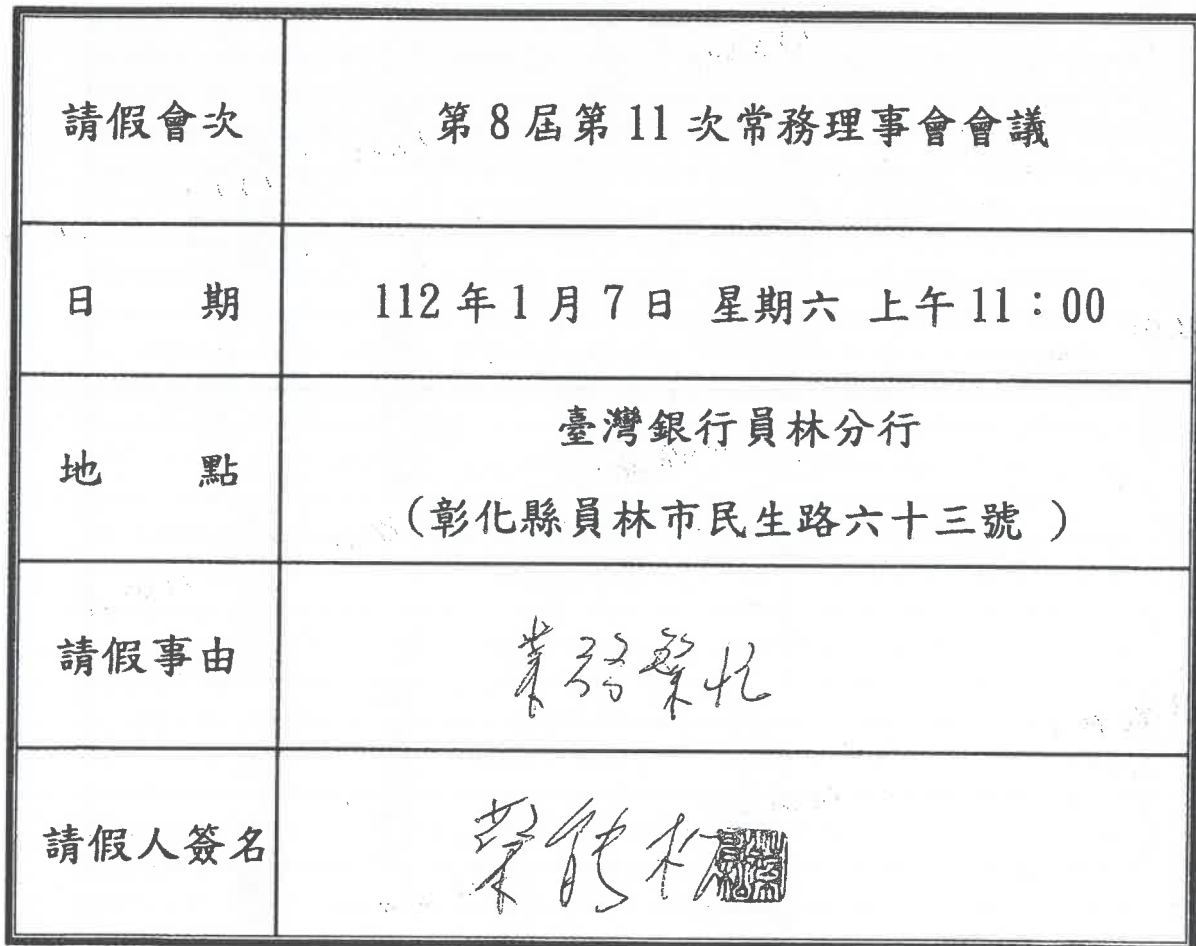 請假會次
第8屆第11次常務理事會會議
日 期
112年1月7日 星期六 上午11:00
地 點
臺灣銀行員林分行
(彰化縣員林市民生路六十三號 )
請假事由
業務繁忙
請假人簽名